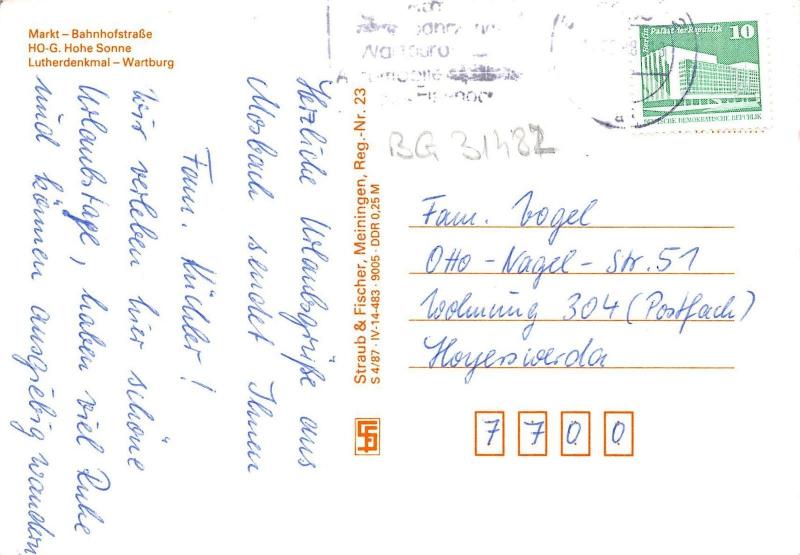 Markt – Bahnhofstraße
HO-G. Hohe Sonne
Lutherdenkmal – Wartburg
Herzliche Urlaubsgrüße aus
Mosbach sendet Ihnen
Fam. Küchler!
Wir verleben hier schöne
Urlaubstage, haben viel Ruhe
und können ausgiebig wandern
Straub & Fischer, Meiningen, Reg.-Nr. 23
S 4/87 · IV-14-483 · 9005 · DDR 0,25 M
Wartburg
Berlin Palast der Republik
10
DEUTSCHE DEMOKRATISCHE REPUBLIK
BG 31482
Fam. Vogel
Otto-Nagel-Str. 51
Wohnung 304 (Postfach)
Hoyerswerda
7700